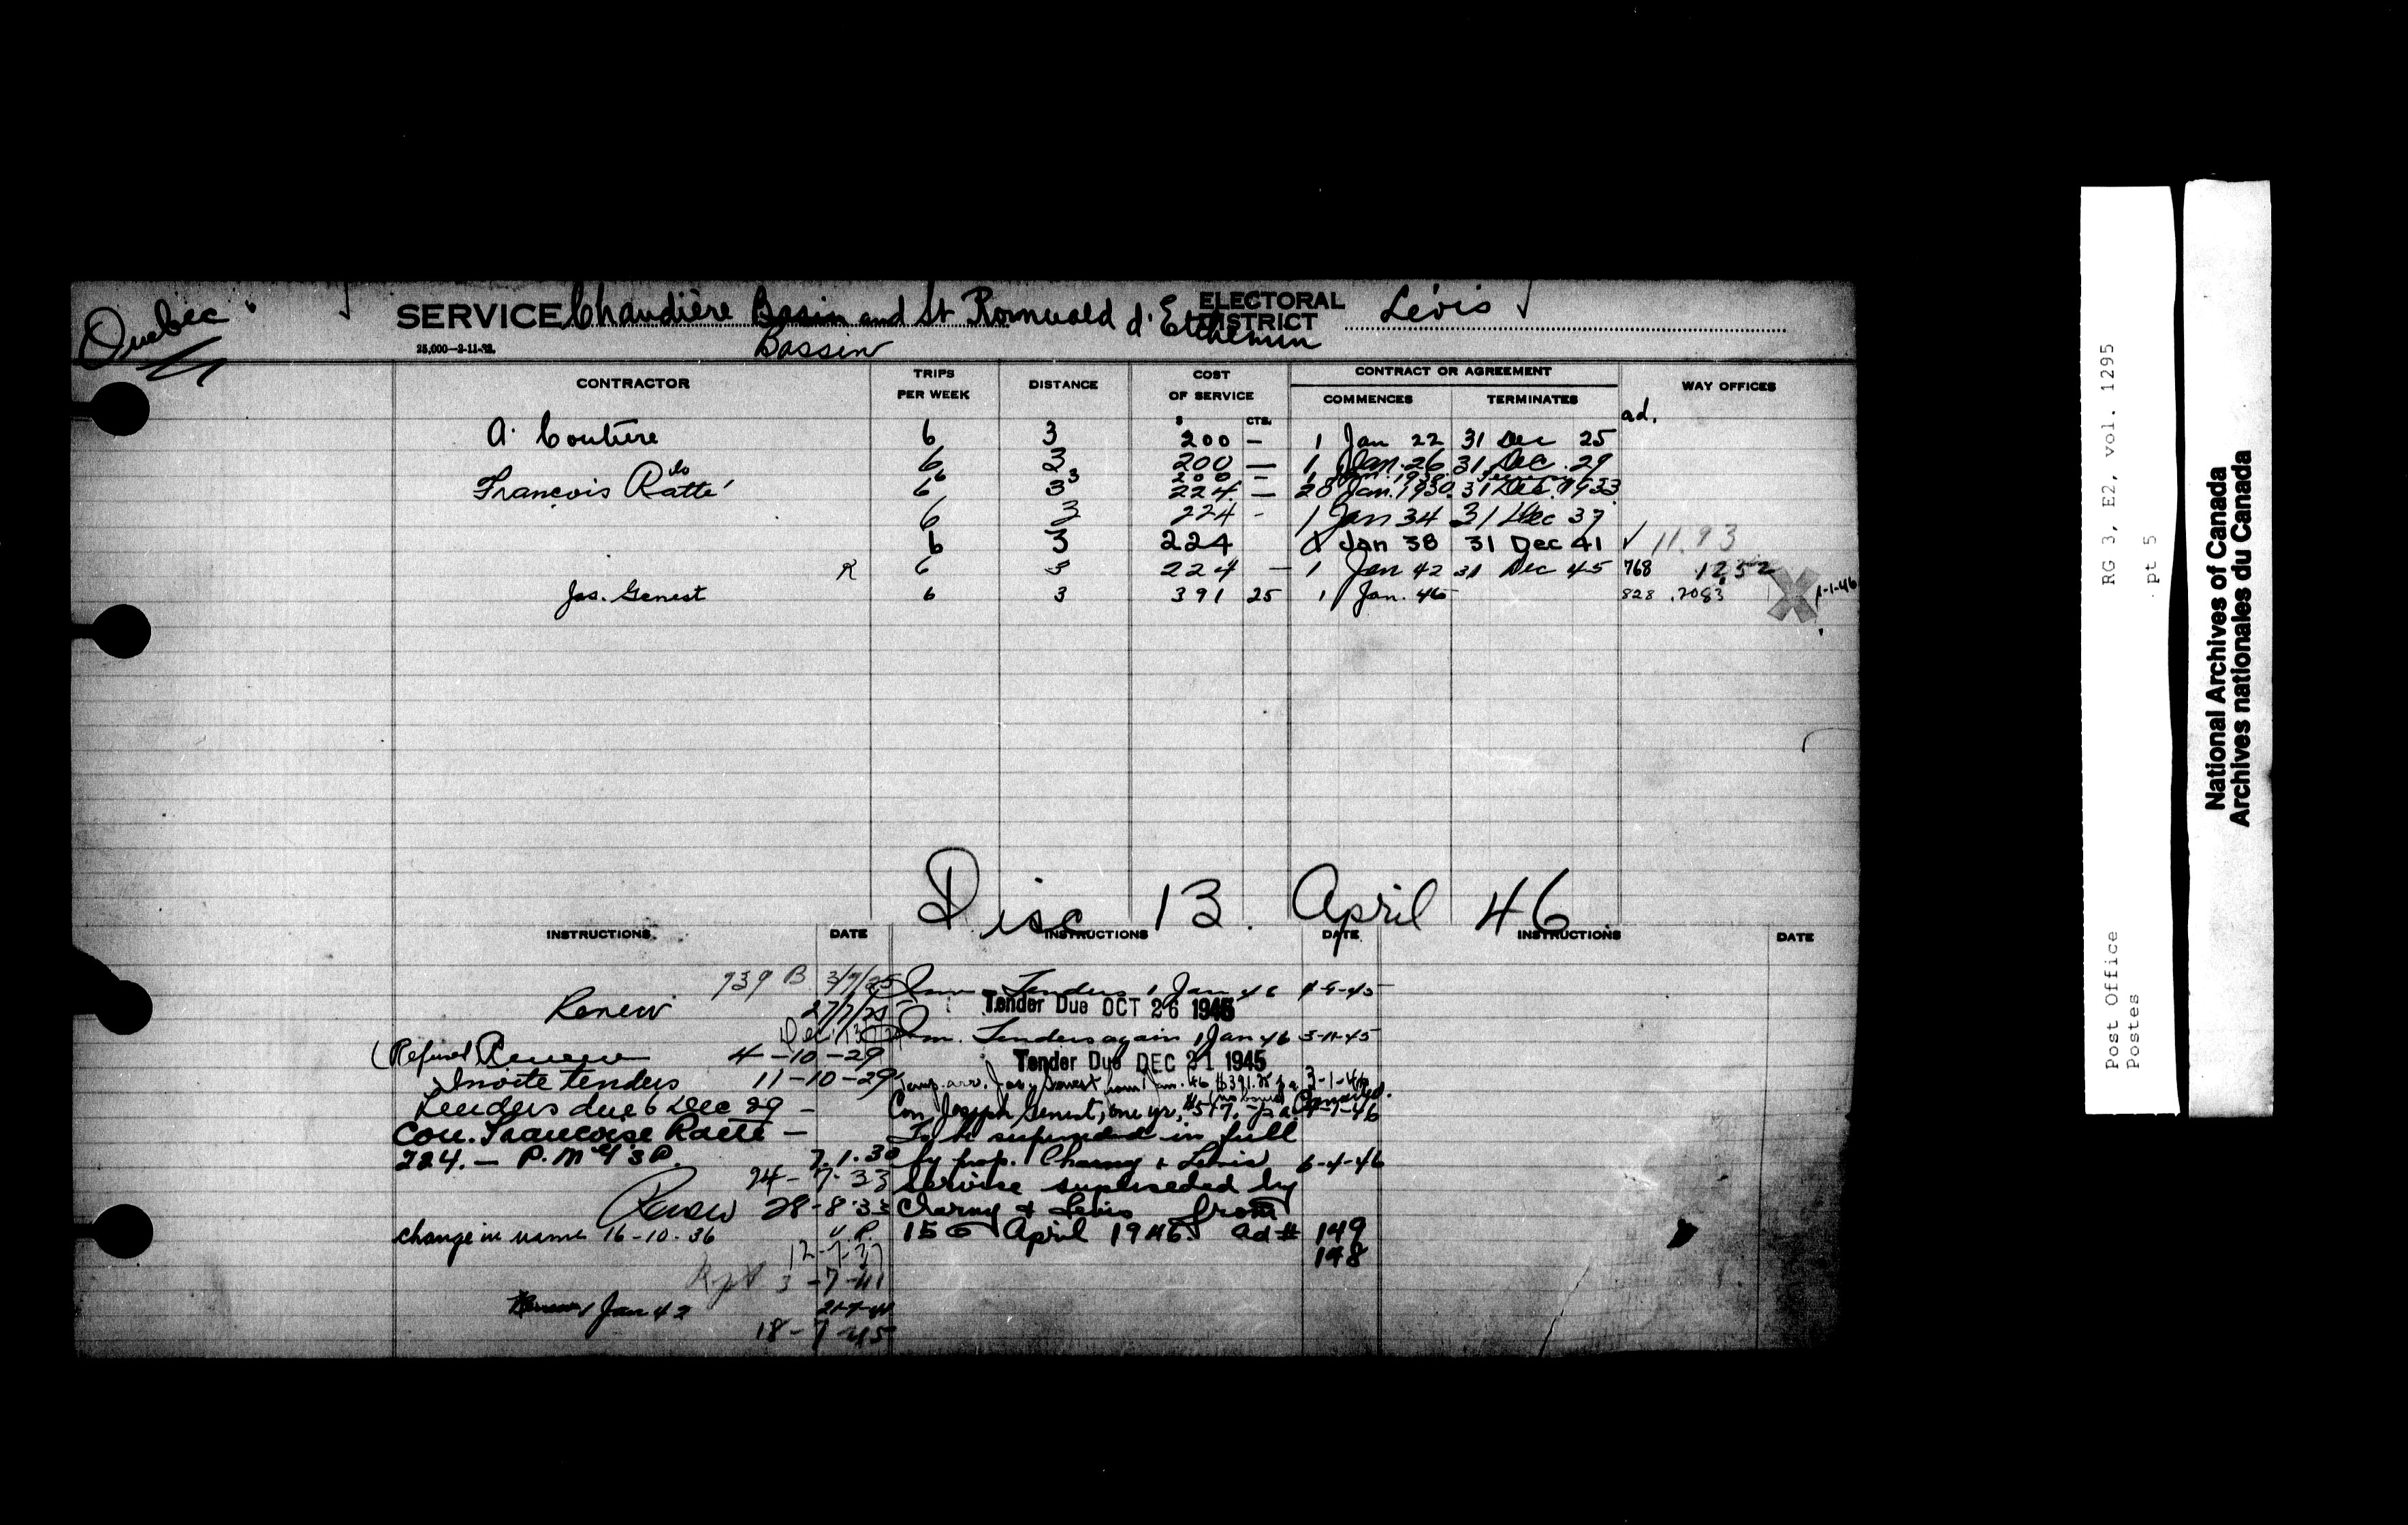 Quebec
SERVICE Chaudière Basin and St Romuald d'Etchemin
Bassin
ELECTORAL DISTRICT Lévis
25,000—2-11-32.
CONTRACTOR TRIPS PER WEEK DISTANCE COST OF SERVICE CONTRACT OR AGREEMENT WAY OFFICES
COMMENCES TERMINATES
$ CTS. ad.
A. Couture 6 3 200 — 1 Jan 22 31 Dec 25
do 6 3 200 — 1 Jan. 26 31 Dec. 29
6 3 200 — 1 Jan. 1930
François Ratté 6 3 224 — 20 Jan. 1930. 31 Dec. 1933
6 3 224 - 1 Jan 34 31 Dec 37
6 3 224 1 Jan 38 31 Dec 41 ✓ 1193
R 6 3 224 — 1 Jan 42 31 Dec 45 768 1252
Jos. Genest 6 3 391 25 1 Jan. 46 828 .2083 X 1-1-46
Disc 13. April 46
INSTRUCTIONS. DATE INSTRUCTIONS DATE INSTRUCTIONS DATE
739 B 3/7/25
Renew 27/7/25
(Refused Renew 4-10-29
Invite tenders 11-10-29
Tenders due 6 Dec 29 —
Con. Francoise Ratté —
224.— P.M.G's D. 7.1.30
24-7-33
Renew 28-8-33
change in name 16-10-36 V.P.
12-7-37
Rpt 3-7-41
Renew 1 Jan 42 21-7-41
18-7-45
Inv. Tenders 1 Jan 46 4-9-45
Tender Due OCT 26 1945
Inv. Tenders again 1 Jan 46 3-11-45
Tender Due DEC 21 1945
Temp. arr. Jos. Genest from 1 Jan. 46 $391.25 p.a. 3-1-46
Con Joseph Genest, one yr, $547.- p.a. (no bonus) Cancelled.
To be superseded in full
by prop. Charny & Levis 6-4-46
Service superseded by
Charny & Levis from
15 April 1946. ad # 149
148
Post Office RG 3, E2, vol. 1295
Postes pt 5
National Archives of Canada
Archives nationales du Canada